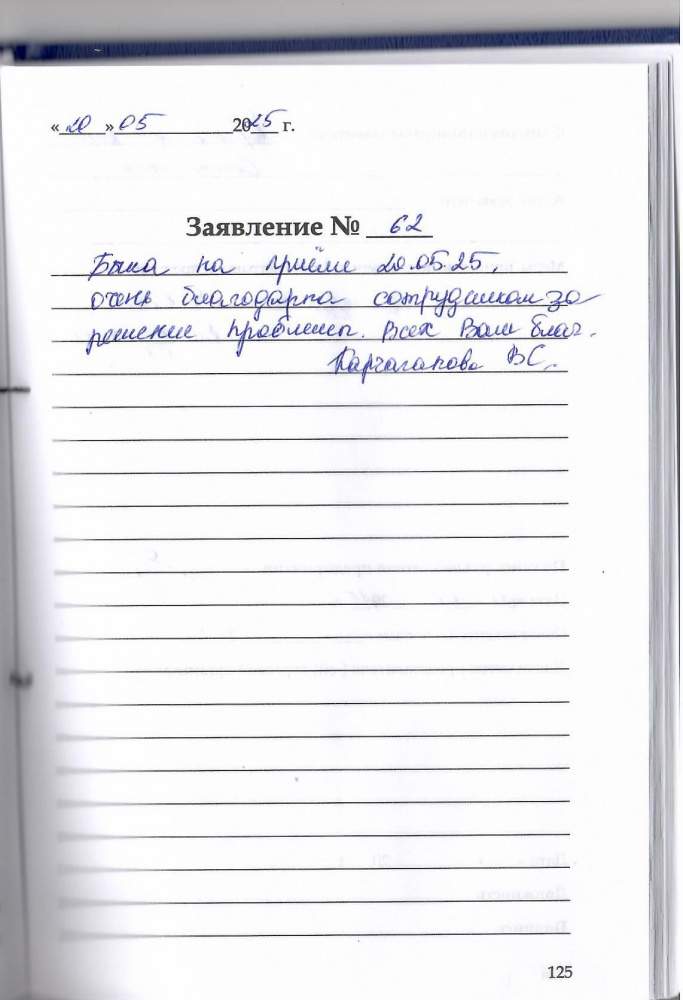 «20» 05 2025 г.
Заявление № 62
Была на приёме 20.05.25,
очень благодарна сотрудникам за
решение проблемы. Всех Вам благ.
Карчаганова В.С.
125